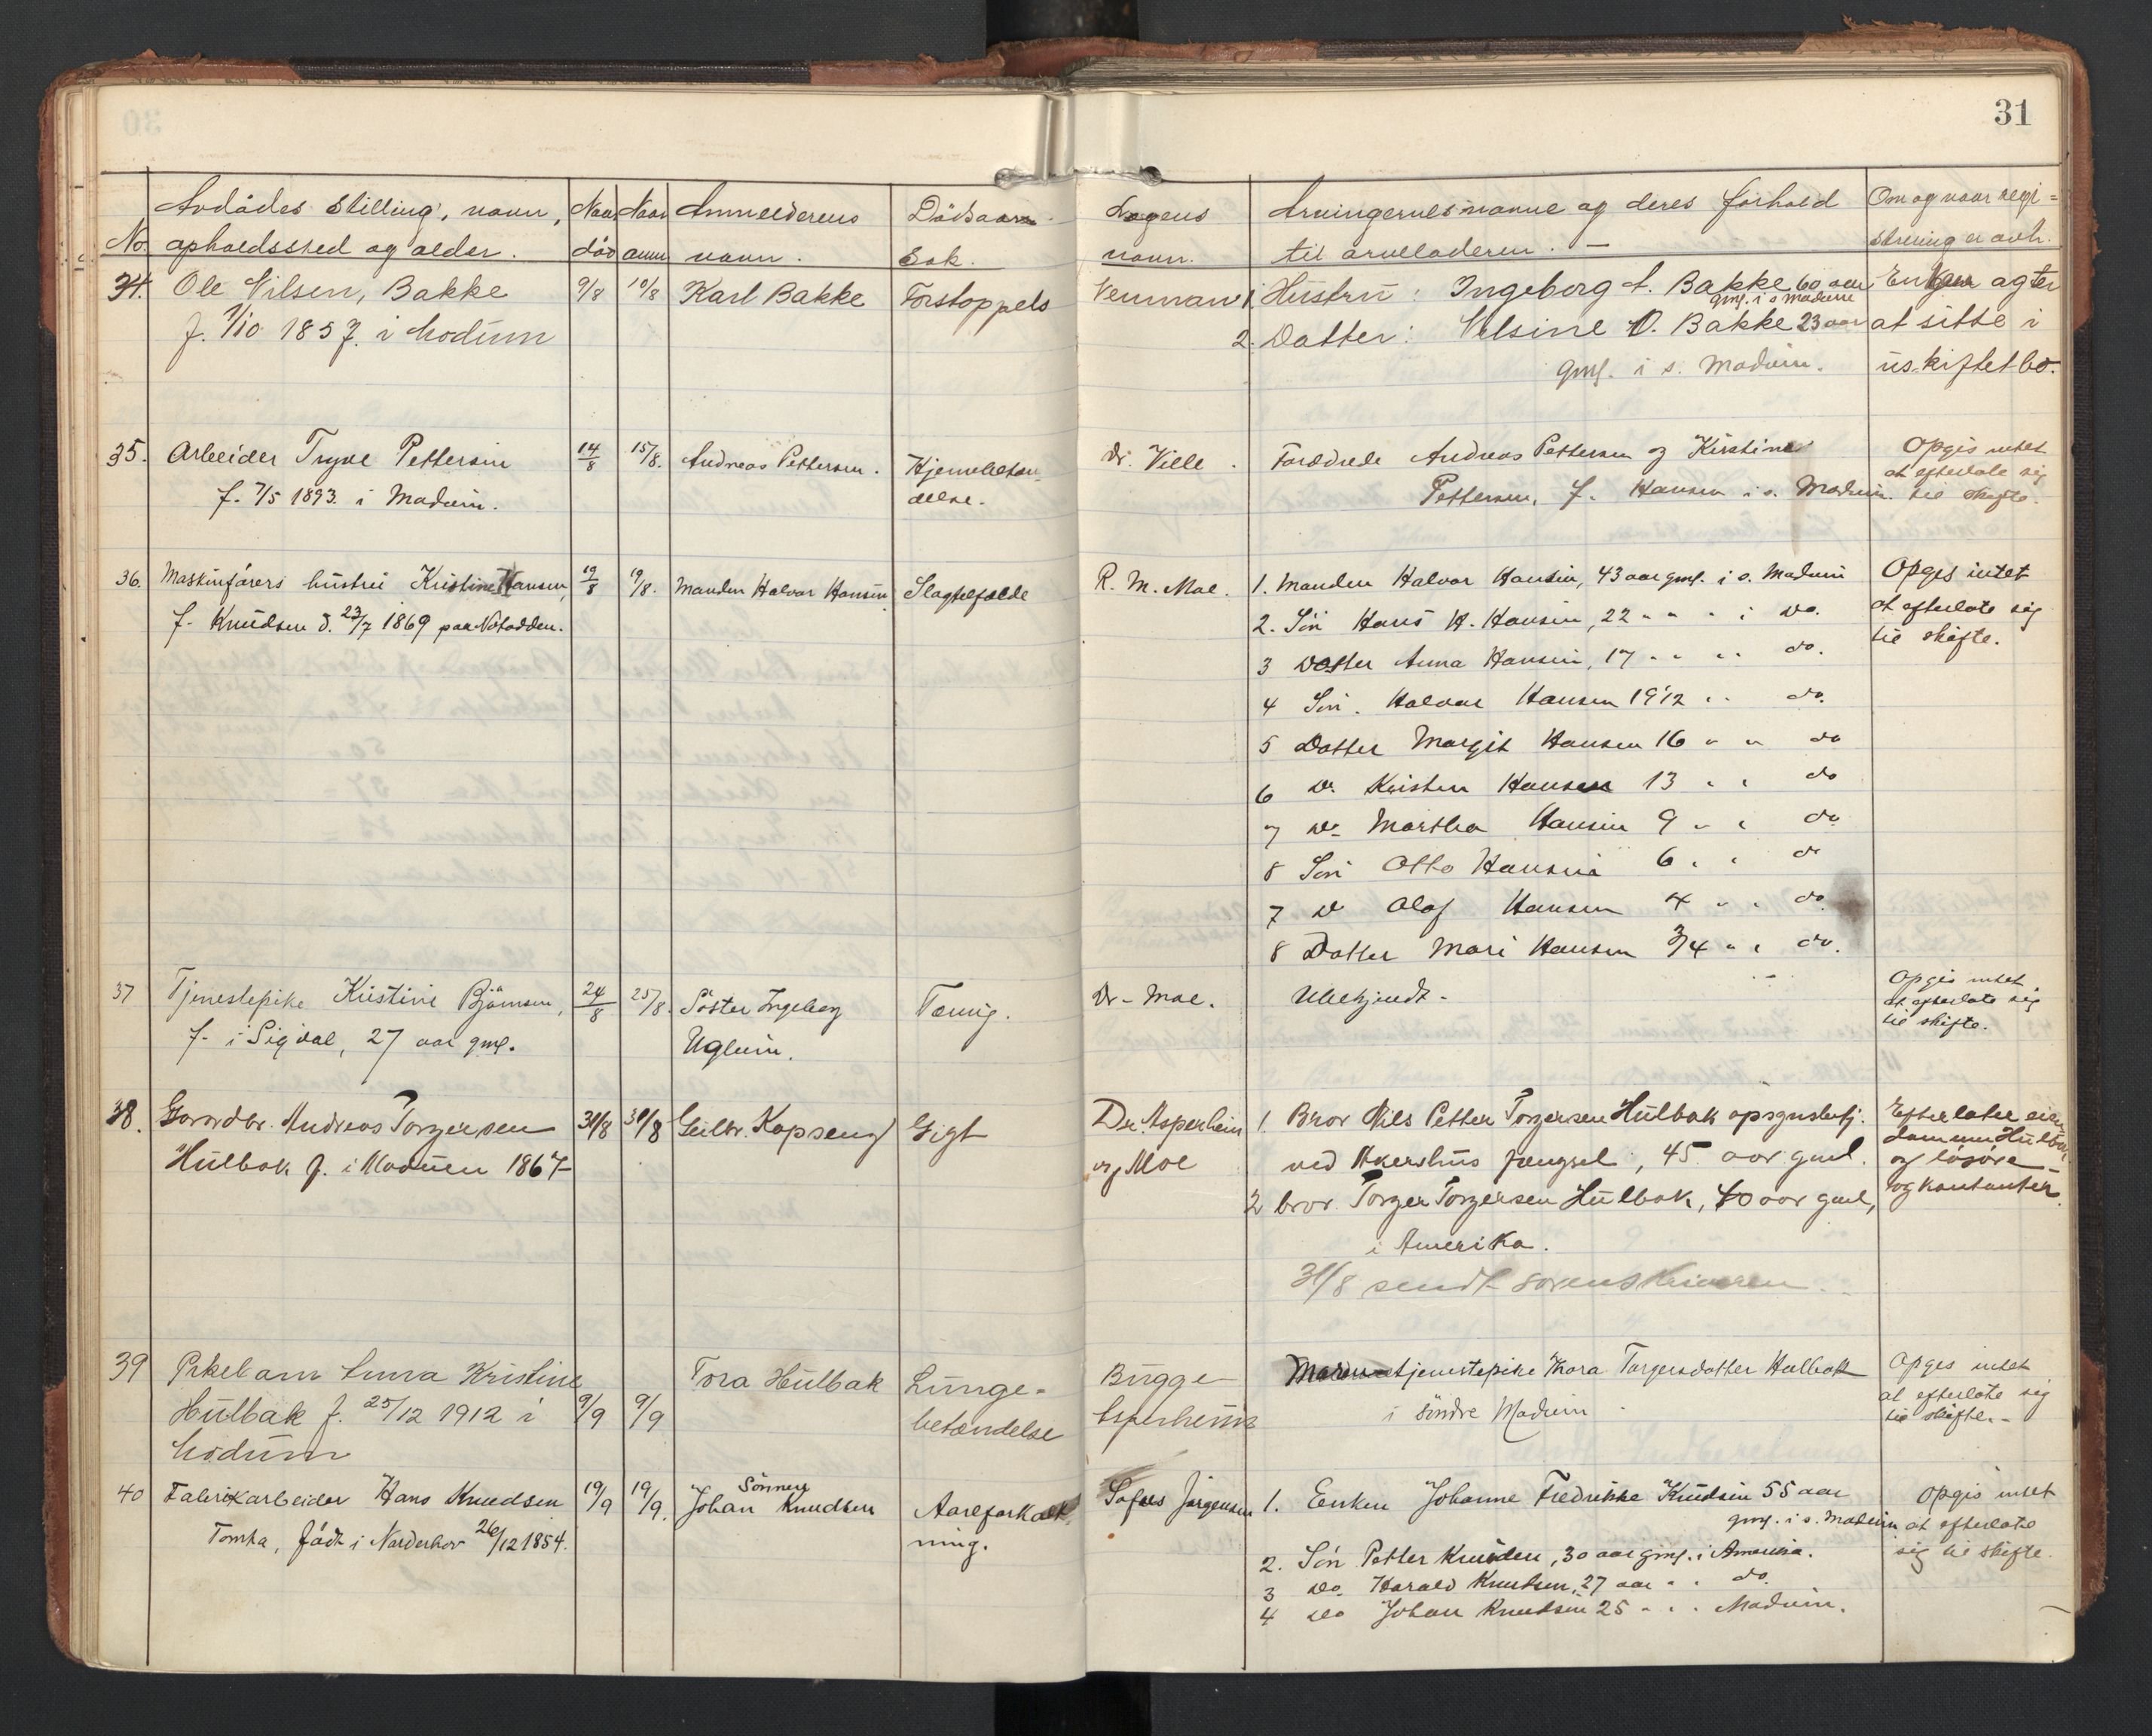 31
No. Avdödes stilling, navn, opholdssted og alder. Naar död Naar anm Anmelderens navn. Dödsaars. Sak. Lægens navn. Arvingernes navne og deres forhold til arveladeren. — Om og naar regi= strering er avh.
34. Ole Nilsen, Bakke 9/8 10/8 Karl Bakke Forstoppels
f. 1/10 1857. i Modum
1. Hustru: Ingeborg A. Bakke 60 aar
gml. i s Modum
2. Datter: Nilsine O. Bakke 23 aar
gml. i s. Modum.
Enken agter
at sitte i
uskiftet bo.
35. Arbeider Trygve Pettersen 14/8 15/8. Andreas Pettersen. Hjernebetæn-
f. 7/5 1893. i Modum. delse.
Dr. Ville. Forældrede Andreas Pettersen og Kirstine
Pettersen, f. Hansen i s. Modum.
Opgis intet
at efterlate sig
til skifte.
36. Maskinførers hustru Kristine Hansen, 19/8 19/8. Manden Halvor Hansen Slagtilfælde
f. Knudsen d. 23/7 1869 paa Notodden.
R. M. Moe. 1. Manden Halvor Hansen, 43 aar gml. i s. Modum
2. Sön Hans H. Hansen, 22 " " " i do.
3 Datter Anna Hansen, 17 " " " do.
4 Sön. Halvor Hansen 19 1/2 " " do.
5 Datter Margit Hansen 16 " " do
6 do. Kristen Hansen 13 " " do
7 do. Martha Hansen 9 " " do
8 Sön Otto Hansen 6 " " do
7 do Olaf Hansen 4 " " do.
8 Datter Mari Hansen 3/4 " " do.
Opges intet
at efterlate sig
til skifte.
37 Tjenestepike Kristine Björnsen, 24/8 25/8. Söster Ingeborg Tæring.
f. i Sigdal, 27 aar gml. Uglum.
Dr. Moe. Ubekjendt.
Opgis intet
at efterlate sig
til skifte.
38. Gaardbr. Andreas Torgersen 31/8 31/8 Geilbr. Kopseng Gigt
Hülbak f. i Modum 1867
Dr. Asperheim
og Moe
1. Bror Nils Petter Torgersen Hülbak opsynsbetj.
ved Akershus fængsel, 45 aar gml.
2 bror. Torger Torgersen Hülbak, 40 aar gml,
i Amerika.
31/8 sendt sorenskriveren.
Efterlater eien-
dommen Hülbak
og lösöre
og kontanter.
39 Pikebarn Anna Kristine Tora Hülbak Lunge-
Hülbak f. 25/12 1912 i 9/9 9/9 betændelse
Modum
Bugge
Asperheim
tjenestepike Thora Torgersdatter Hulbak
i söndre Modum
Opges intet
at efterlate sig
til skifte.-
40 Fabrikarbeider Hans Knudsen 19/9 19/9. Sönnen
Johan Knudsen Aareforkalk-
Tomta, födt i Norderhov 26/12 1854. ning.
Sofus Jörgensen 1. Enken Johanne Fredrikke Knudsen 55 aar
gml. i s. Modum
2. Sön Petter Knudsen, 30 aar gml. i Amerika.
3 do. Harald Knudsen, 27 aar " " do.
4 do Johan Knudsen 25 " " " Modum.
Opgis intet
at efterlate
sig til skifte.